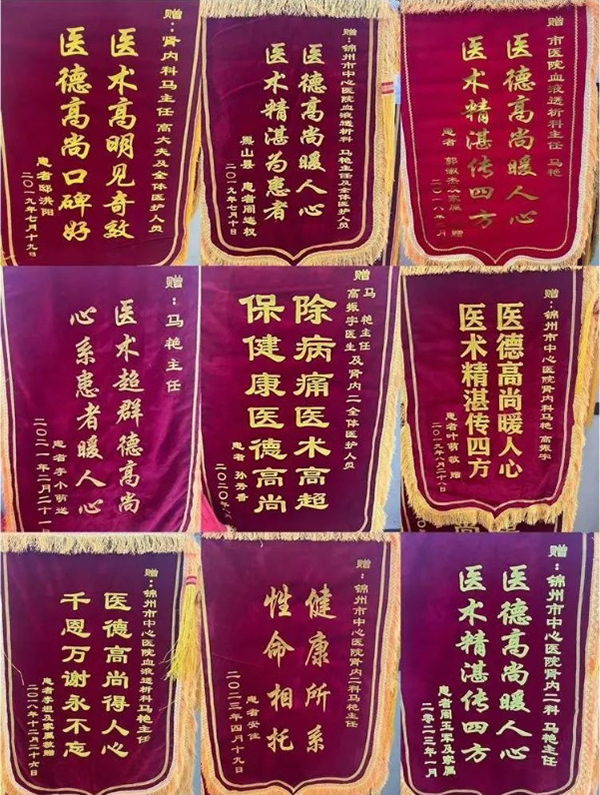 赠：肾内科马主任 高大夫及全体医护人员
医术高明见奇效
医德高尚口碑好
患者邸洪阳
二〇一九年七月十九日
赠：锦州市中心医院血液透析科 马艳主任及全体医护人员
医德高尚暖人心
医术精湛为患者
黑山县 患者周远权
二〇一九年七月十日
赠 市医院血液透析科主任 马艳
医德高尚暖人心
医术精湛传四方
患者 郭淑杰及家属 赠
赠：马艳主任
医术超群德高尚
心系患者暖人心
患者李小萌送
二〇二一年二月二十一
赠 马艳主任
高振宇医生及肾内二全体医护人员
除病痛医术高超
保健康医德高尚
患者 孙秀香
赠：锦州市中心医院肾内科马艳 高振宇
医德高尚暖人心
医术精湛传四方
患者叶萌 敬赠
二〇一九年八月二十八日
赠：锦州市中心医院血液透析科马艳主任
医德高尚得人心
千恩万谢永不忘
患者李坦及家属敬赠
二〇一八年十二月二十六日
赠：锦州市中心医院肾内二科马艳主任
健康所系
性命相托
患者安佳
二〇二三年四月十九日
赠：锦州市中心医院肾内二科 马艳主任
医德高尚暖人心
医术精湛传四方
患者周玉军及家属
二零二三年一月